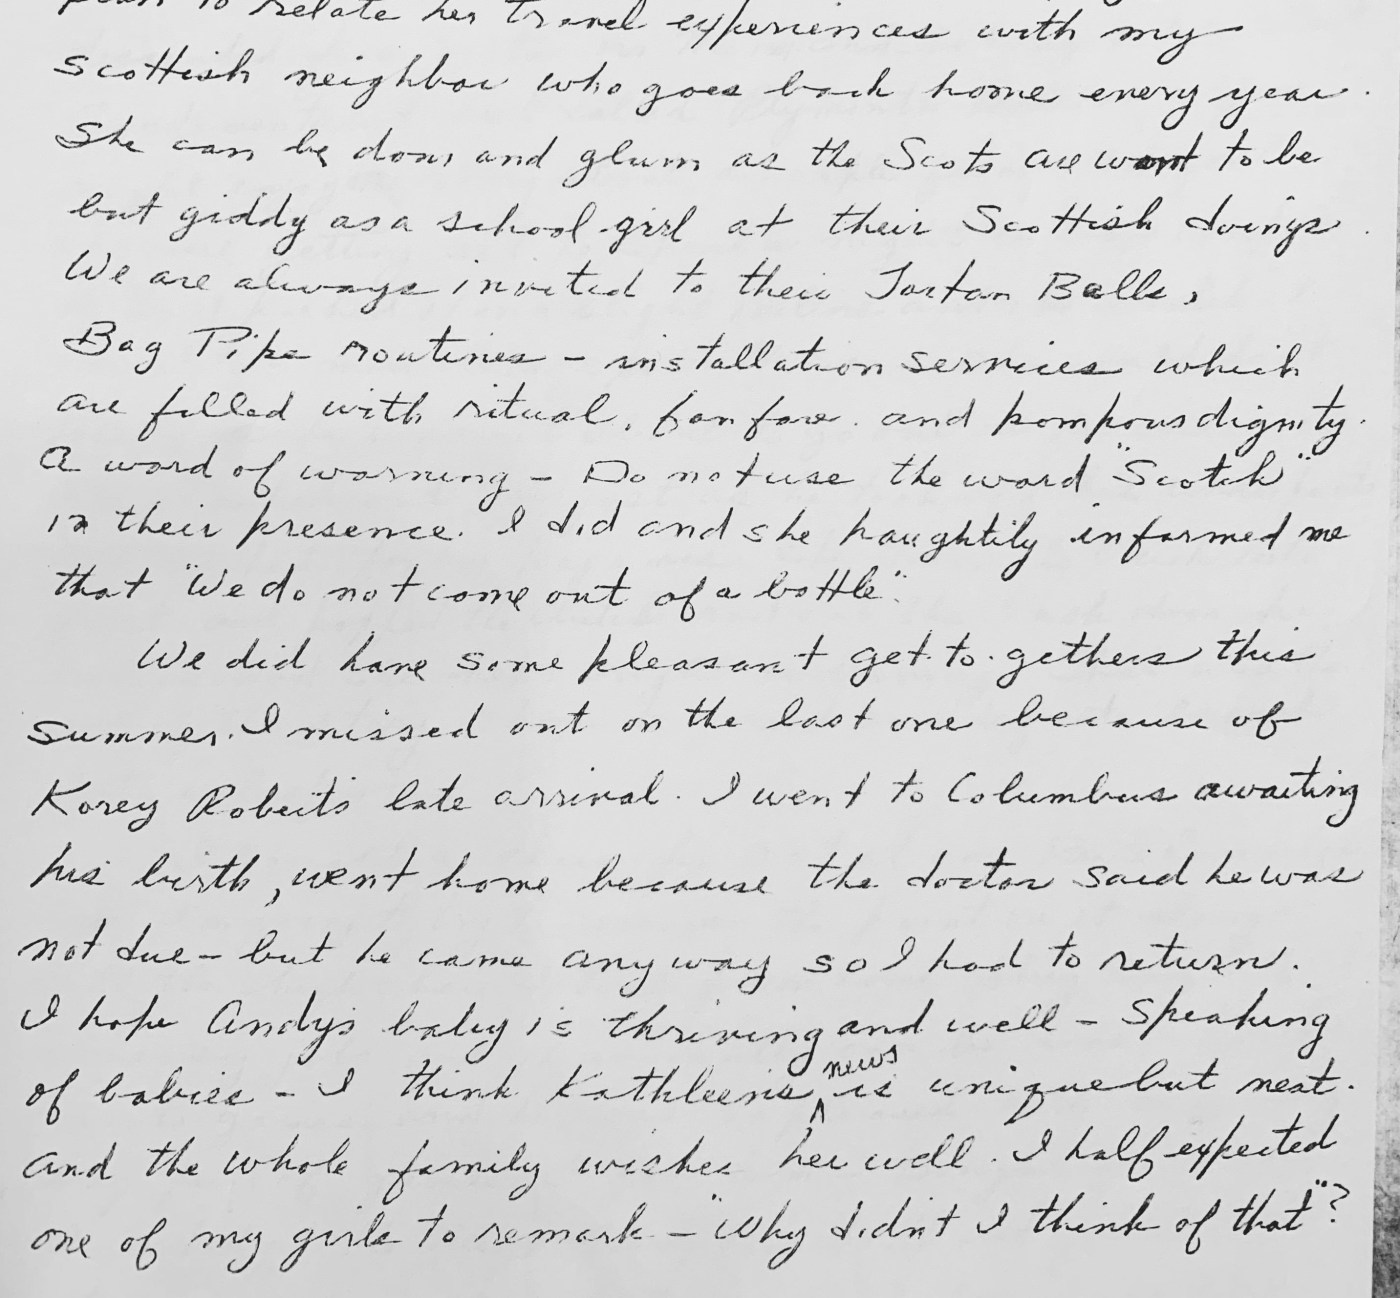 to relate her travel experiences with my
scottish neighbor who goes back home every year.
She can be dour and glum as the Scots are wont to be
but giddy as a school-girl at their Scottish doings.
We are always invited to their Tartan Balls,
Bag Pipe routines - installation services which
are filled with ritual, fanfare and pompous dignity.
A word of warning - Do not use the word "Scotch"
in their presence. I did and she haughtily informed me
that "We do not come out of a bottle".
We did have some pleasant get-to-gethers this
summer. I missed out on the last one because of
Korey Roberts late arrival. I went to Columbus awaiting
his birth, went home because the doctor said he was
not due - but he came anyway so I had to return.
I hope Andy's baby is thriving and well - Speaking
of babies - I think Kathleen's news is unique but neat.
And the whole family wishes her well. I half expected
one of my girls to remark - "Why didn't I think of that"?